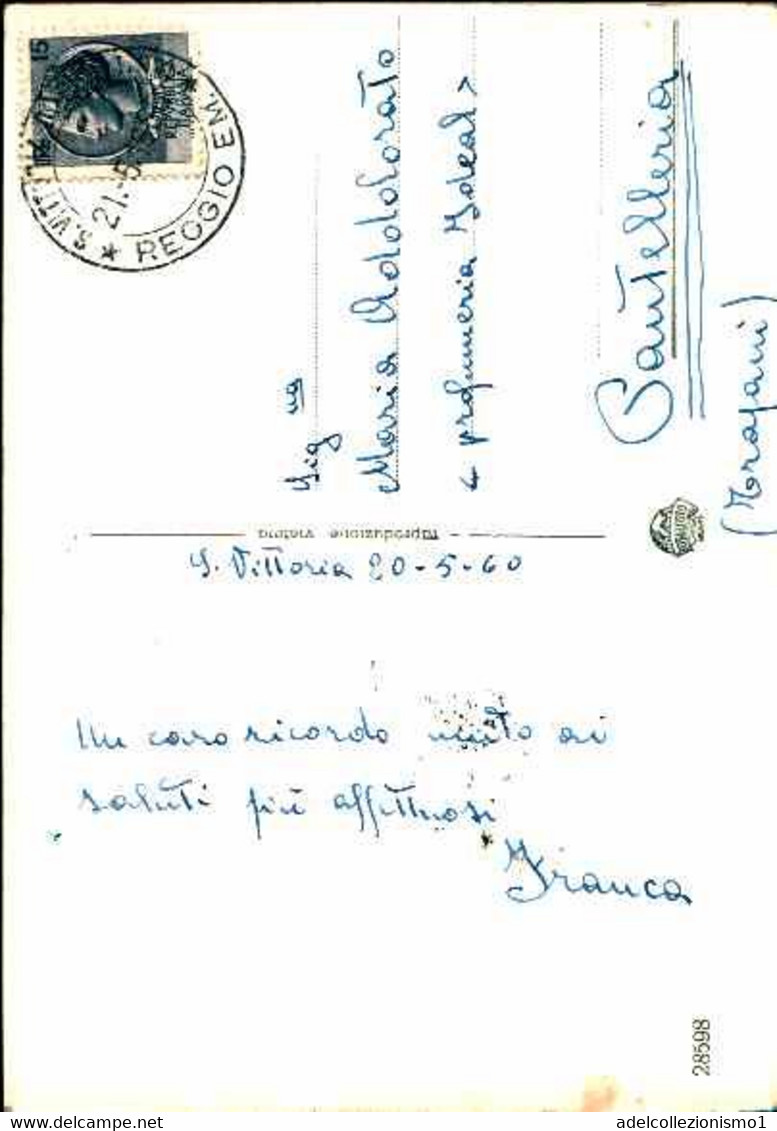 S. Vittoria 20-5-60
Un caro ricordo unito ai
saluti più affettuosi
Franca
Sig.na
Maria Addolorata
< profumeria Ideal >
Pantelleria
(Trapani)
15
REGGIO EM.
21.-5
Riproduzione vietata
28598
adelcollezionismo1